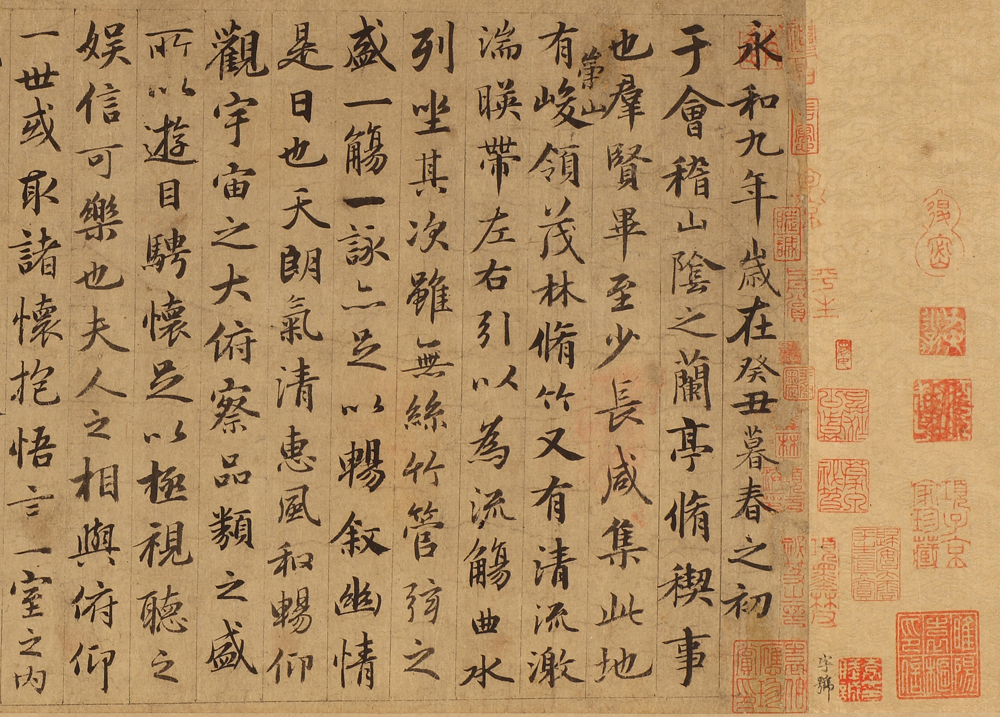 項子京
家珍藏
字號
永和九年歲在癸丑暮春之初
于會稽山陰之蘭亭脩稧事
也羣賢畢至少長咸集此地
崇山
有峻領茂林脩竹又有清流激
湍暎帶左右引以為流觴曲水
列坐其次雖無絲竹管弦之
盛一觴一詠亦足以暢叙幽情
是日也天朗氣清惠風和暢仰
觀宇宙之大俯察品類之盛
所以遊目騁懷足以極視聽之
娛信可樂也夫人之相與俯仰
一世或取諸懷抱悟言一室之內